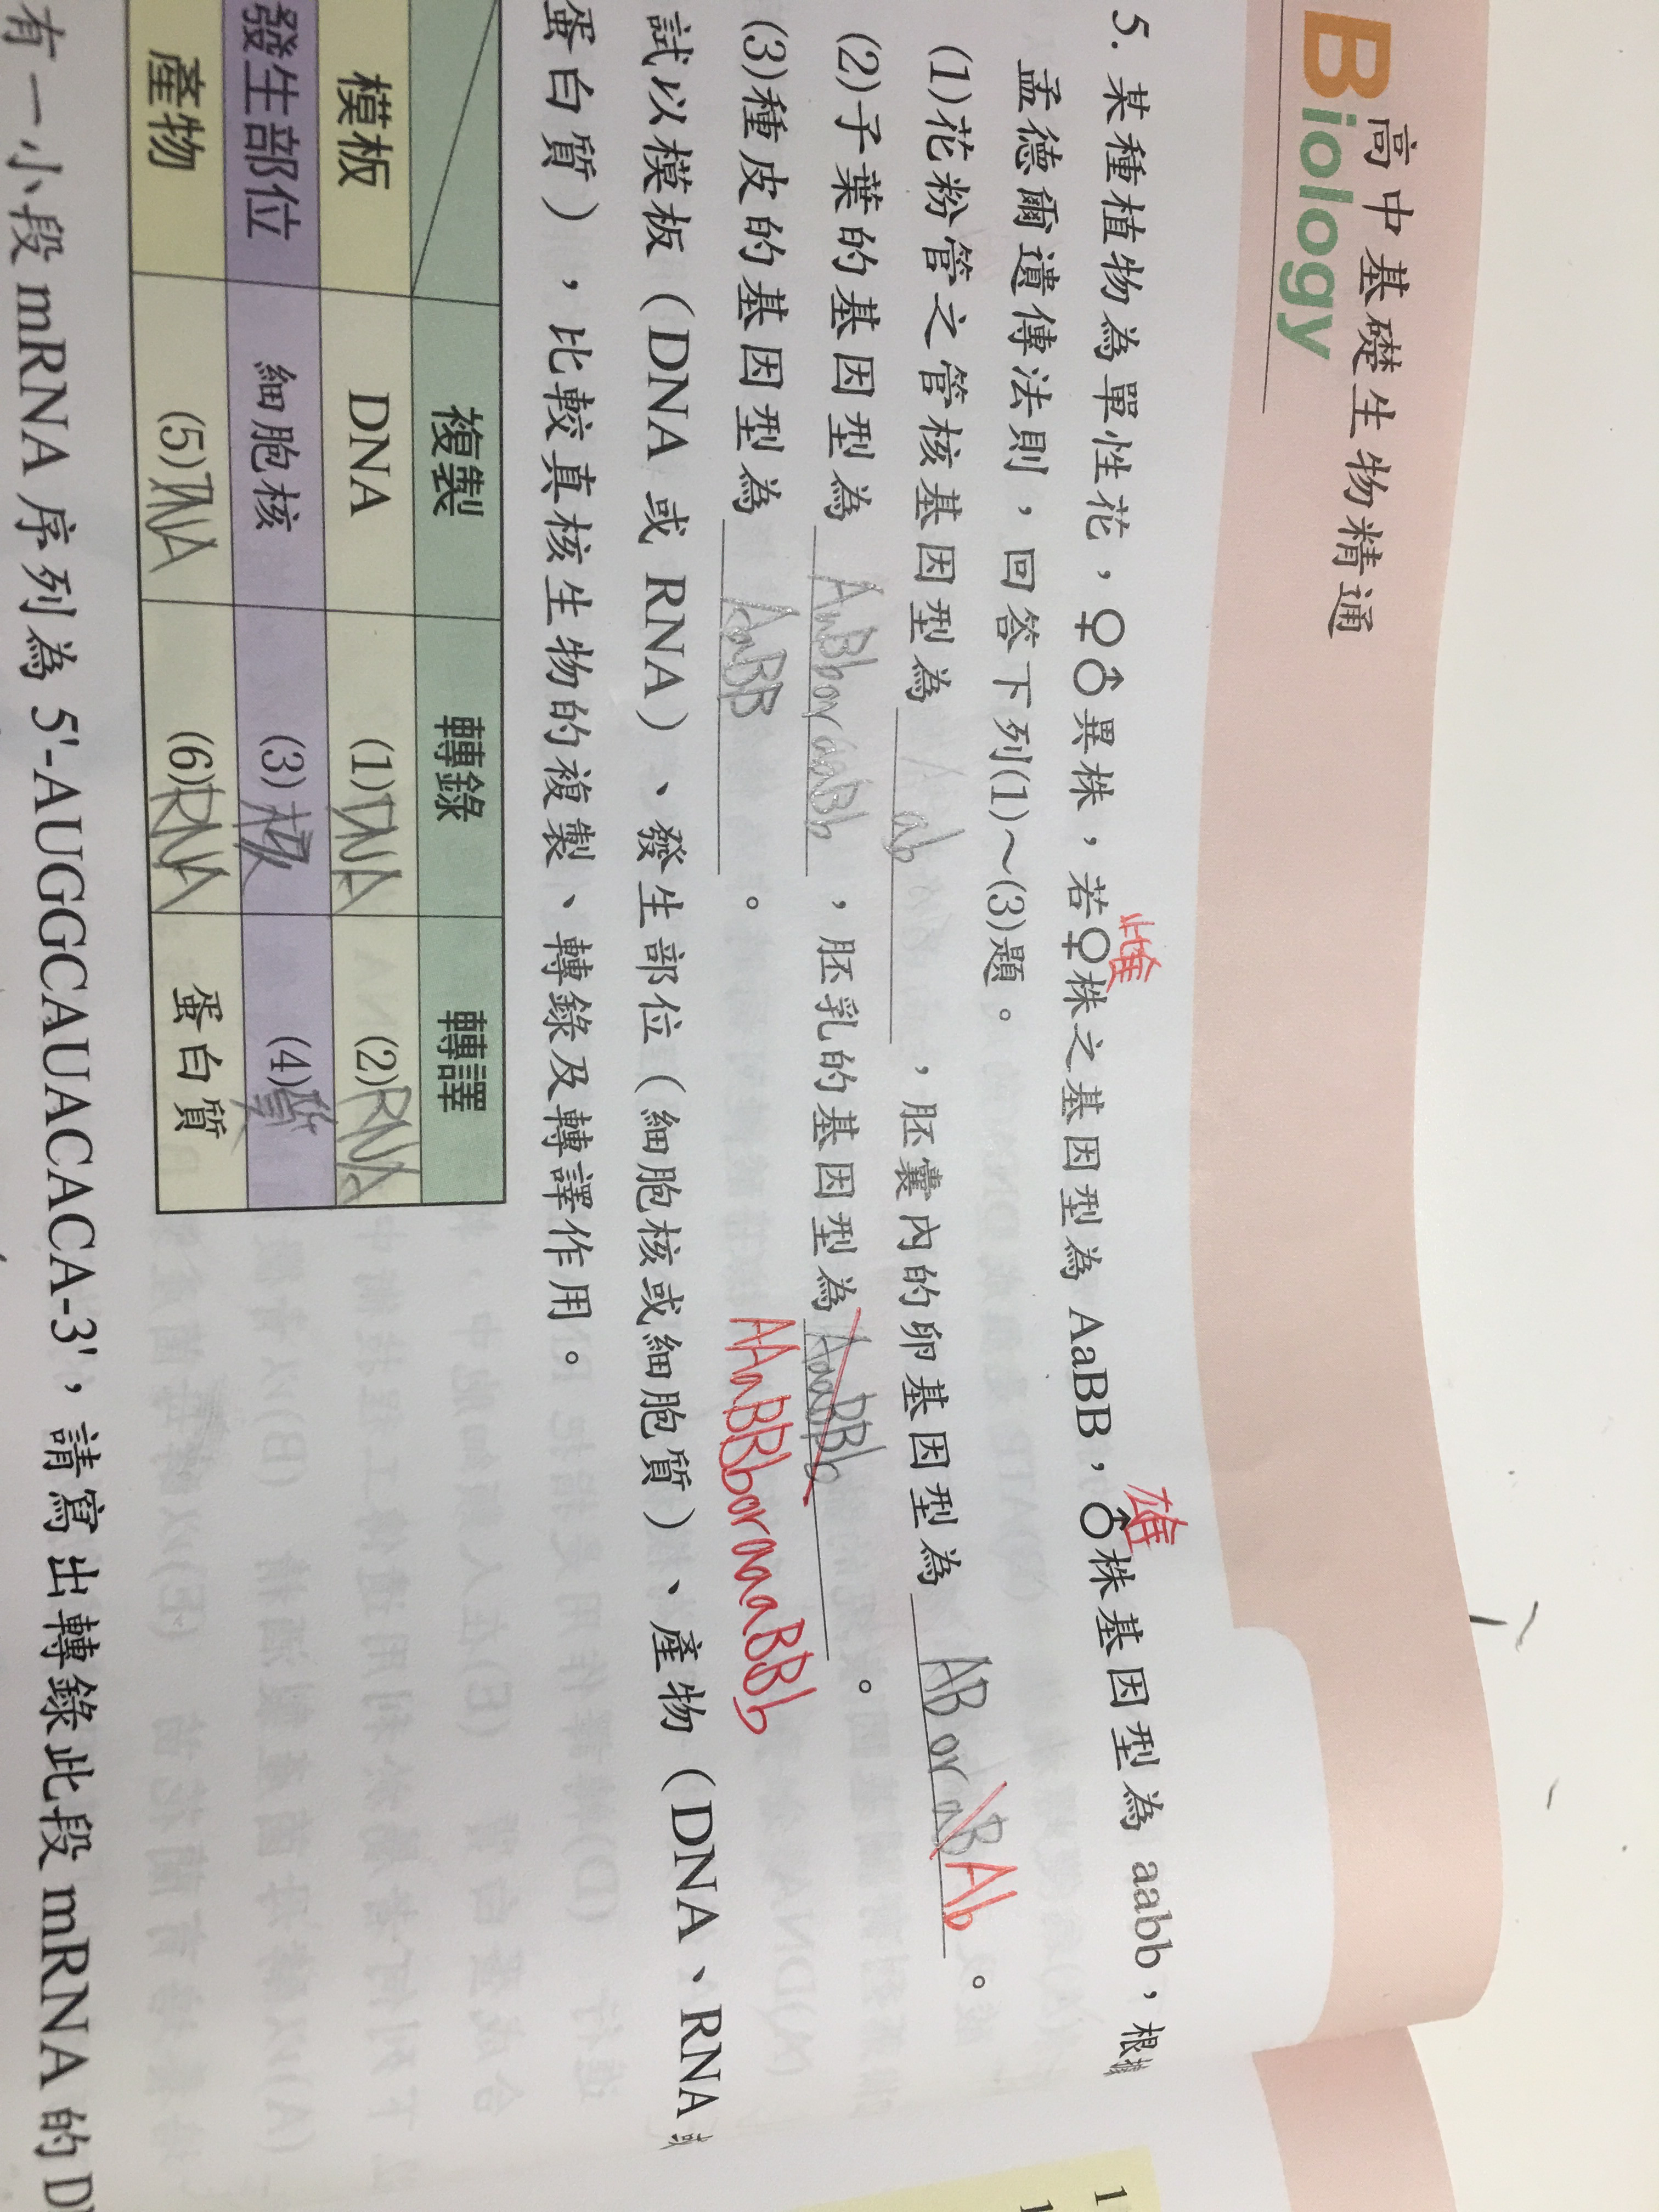 高中基礎生物精通
Biology
雌 雄
5. 某種植物為單性花，♀♂異株，若♀株之基因型為 AaBB，♂株基因型為 aabb，根據
孟德爾遺傳法則，回答下列(1)～(3)題。
(1)花粉管之管核基因型為 ab ，胚囊內的卵基因型為 AB or aB Ab 。
(2)子葉的基因型為 AaBb or aaBb ，胚乳的基因型為 AaaBBb 。
AAaBBb or aaaBBb
(3)種皮的基因型為 AaBB 。
試以模板（DNA 或 RNA）、發生部位（細胞核或細胞質）、產物（DNA、RNA 或
蛋白質），比較真核生物的複製、轉錄及轉譯作用。
複製 轉錄 轉譯
模板 DNA (1)DNA (2)RNA
發生部位 細胞核 (3)核 (4)質
產物 (5)DNA (6)RNA 蛋白質
有一小段 mRNA 序列為 5'-AUGGCAUACACA-3'，請寫出轉錄此段 mRNA 的